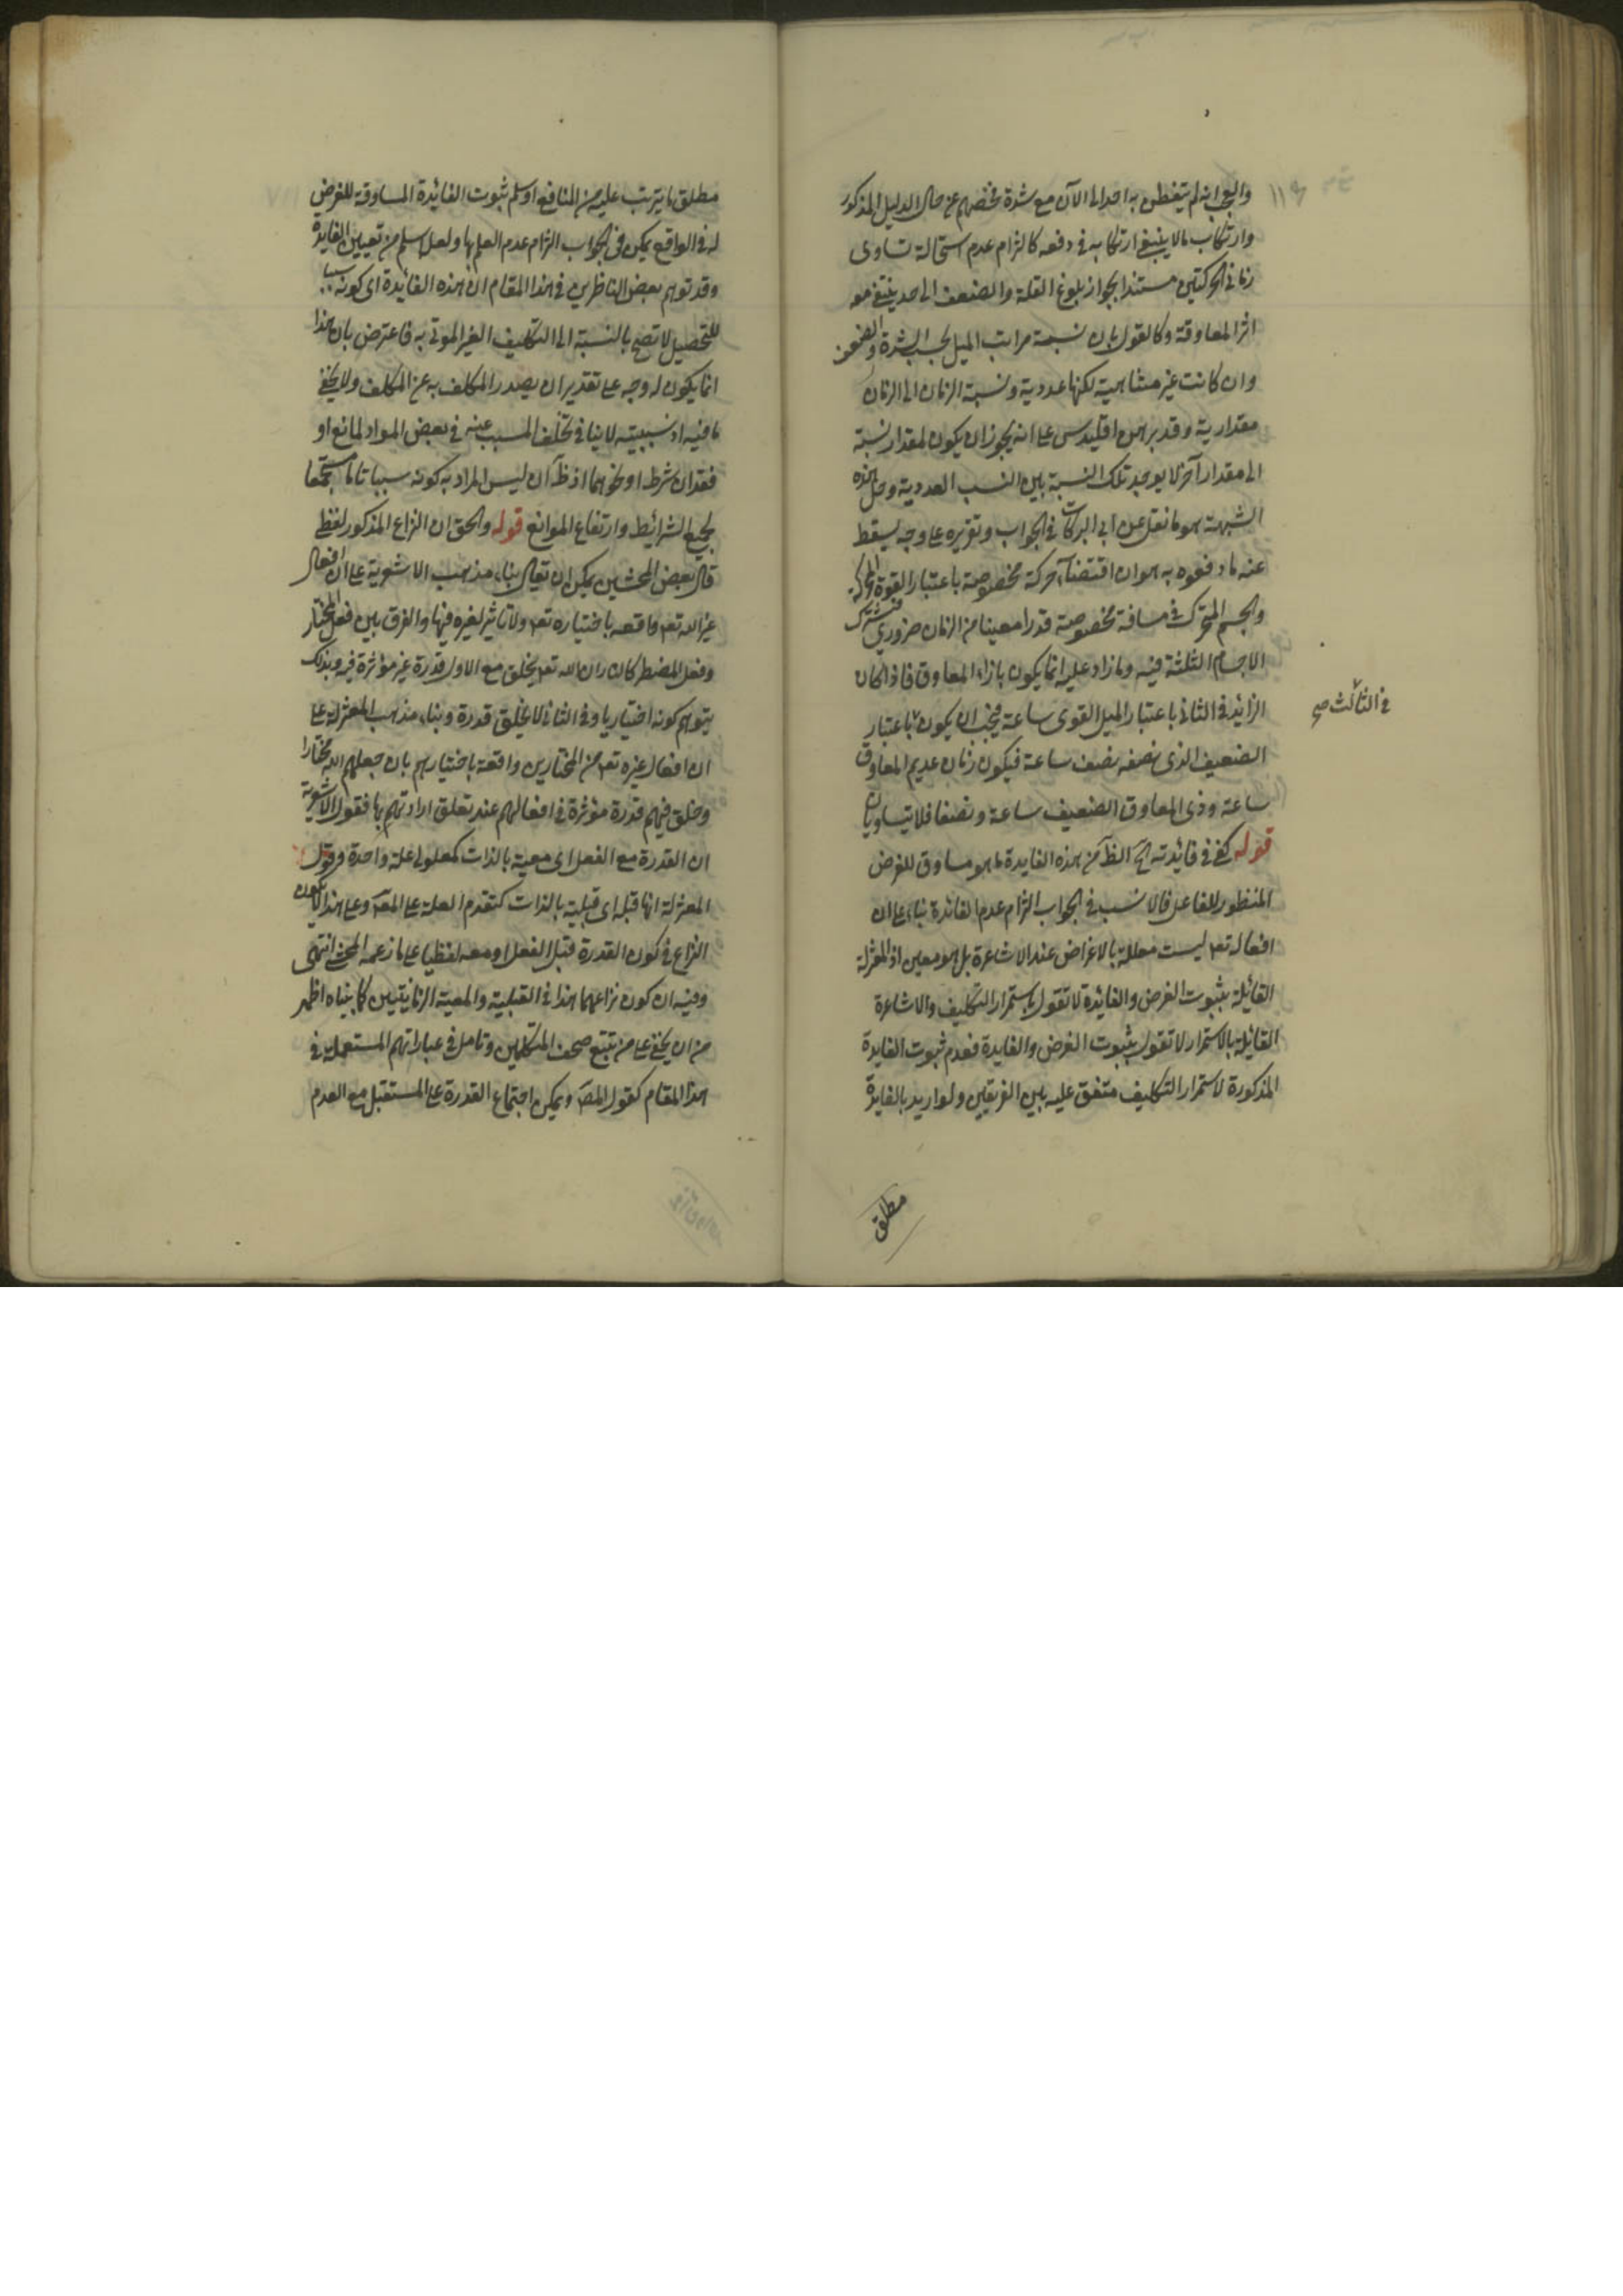 ١١٩
والعجب انه لم يتفطن به احد الى الآن مع شدة تفحصهم عن حال الدليل المذكور
وارتكاب ما لا ينبغي ارتكابه في دفعه كالتزام عدم استحالة تساوى
زماني الحركتين مستندا بجواز بلوغ القلة والضعف الى حد ينتفي معه
اثر المعاوقة وكالقول بان نسبة مراتب الميل بحسب الشدة والضعف
وان كانت غير متناهية لكنها عددية ونسبة الزمان الى الزمان
مقدارية وقد برهن اقليدس على انه يجوز ان يكون لمقدار نسبة
الى مقدار آخر لا يوجد تلك النسبة بين النسب العددية وحل هذه
الشبهة هو ما نقل عن ابي البركات في الجواب وتقريره على وجه يسقط
عنه ما دفعوه به هو ان اقتضاء حركة مخصوصة باعتبار القوة المحركة
والجسم المتحرك في مسافة مخصوصة قدرا معينا من الزمان ضروري فيشترك
الاجسام الثلثة فيه وما زاد عليه انما يكون بازاء المعاوق فاذا كان
الزايد في الثاني باعتبار الميل القوى ساعة فيجب ان يكون باعتبار
في الثالث صح
الضعيف الذى نصفه نصف ساعة فيكون زمان عديم المعاوق
ساعة وذى المعاوق الضعيف ساعة ونصفا فلا يتساويان
قوله كفى في فائدته آه الظ من هذه الفايدة ما هو مساوق للغرض
المنظور للفاعل فالانسب في الجواب التزام عدم الفائدة بناء على ان
افعاله تعـ ليست معللة بالاغراض عند الاشاعرة بل هو معين اذ المعتزلة
القائلة بثبوت الغرض والفائدة لا تقول باستمرار التكليف والاشاعرة
القائلة بالاستمرار لا تقول بثبوت الغرض والفايدة فعدم ثبوت الفايدة
المذكورة لاستمرار التكليف متفق عليه بين الفريقين ولو اريد بالفايدة
مطلق
مطلق ما يترتب عليه من المنافع او سلم ثبوت الفائدة المساوقة للغرض
له في الواقع يمكن في الجواب التزام عدم العلم بها ولعله اسلم من تعيين الفايدة
وقد توهم بعض الناظرين في هذا المقام ان هذه الفائدة اى كونه سببا
للتحصيل لا تصح بالنسبة الى التكليف الغير الموتى به فاعترض بان هذا
انما يكون له وجه على تقدير ان يصدر المكلف به عن المكلف ولا يخفى
ما فيه اذ سببيته لا ينافي تخلف المسبب عنه في بعض المواد لمانع او
فقدان شرط او نحوهما اذ ظ ان ليس المراد به كونه سببا تاما مستجمعا
لجميع الشرائط وارتفاع الموانع قوله والحق ان النزاع المذكور لفظي
قال بعض المحشين يمكن ان يقال بناء مذهب الاشعرية على ان افعال
غير الله تعـ واقعه باختياره تعـ ولا تاثير لغيره فيها والفرق بين فعل المختار
وفعل المضطر كان ان الله تعـ يخلق مع الاول قدرة غير مؤثرة فيه وبذلك
يتوهم كونه اختياريا وفي الثاني لا يخلق قدرة وبناء مذهب المعتزلة على
ان افعال غيره تعـ من المختارين واقعة باختيارهم بان جعلهم الله مختارا
وخلق فيهم قدرة مؤثرة في افعالهم عند تعلق ارادتهم بها فقول الاشعرية
ان القدرة مع الفعل اى معية بالذات كمعلولى علة واحدة وقول
المعتزلة انها قبله اى قبلية بالذات كتقدم العلة على المعـ وعلى هذا لا يكون
النزاع في كون القدرة قبل الفعل او معه لفظيا على ما زعمه المحشي انتهى
وفيه ان كون نزاعهما هذا في القبلية والمعية الزمانيتين كما بيناه اظهر
من ان يخفى على من تتبع صحف المتكلمين وتامل في عباراتهم المستعملة في
هذا المقام كقول المصـ ويمكن اجتماع القدرة على المستقبل مع العدم